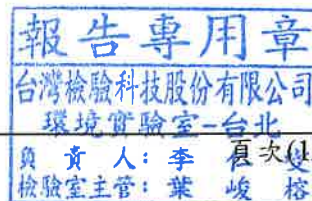 報告專用章
台灣檢驗科技股份有限公司
環境實驗室-台北
負責人:李
頁次(1
檢驗室主管:葉峻榕